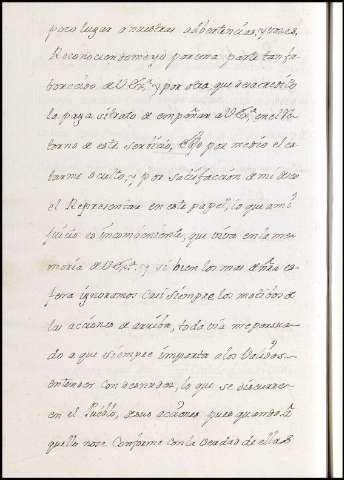 poco lugar a nuestras advertencias, y pues,
Reconociendome yo por una parte tan fa
borecido de V. Ex.ª y por otra, que desacredito
la paga si trato de empeñar a V. Ex.ª en el Re
torno de este servicio, elijo por medio el es
tarme oculto, y por satisfacción de mi deseo
el Representar en este papel, lo que a mi
juicio es incombeniente, que viva en la me
moria de V. Ex.ª y si bien los mas de ntra es
fera ignoramos casi siempre los motibos de
las acciones de arriba, toda via me persua
do a que siempre importa a los Validos
entender con desnudez, lo que se discurre
en el Pueblo, de sus acciones pues quando a
quello no se conforme con la verdad de ellas